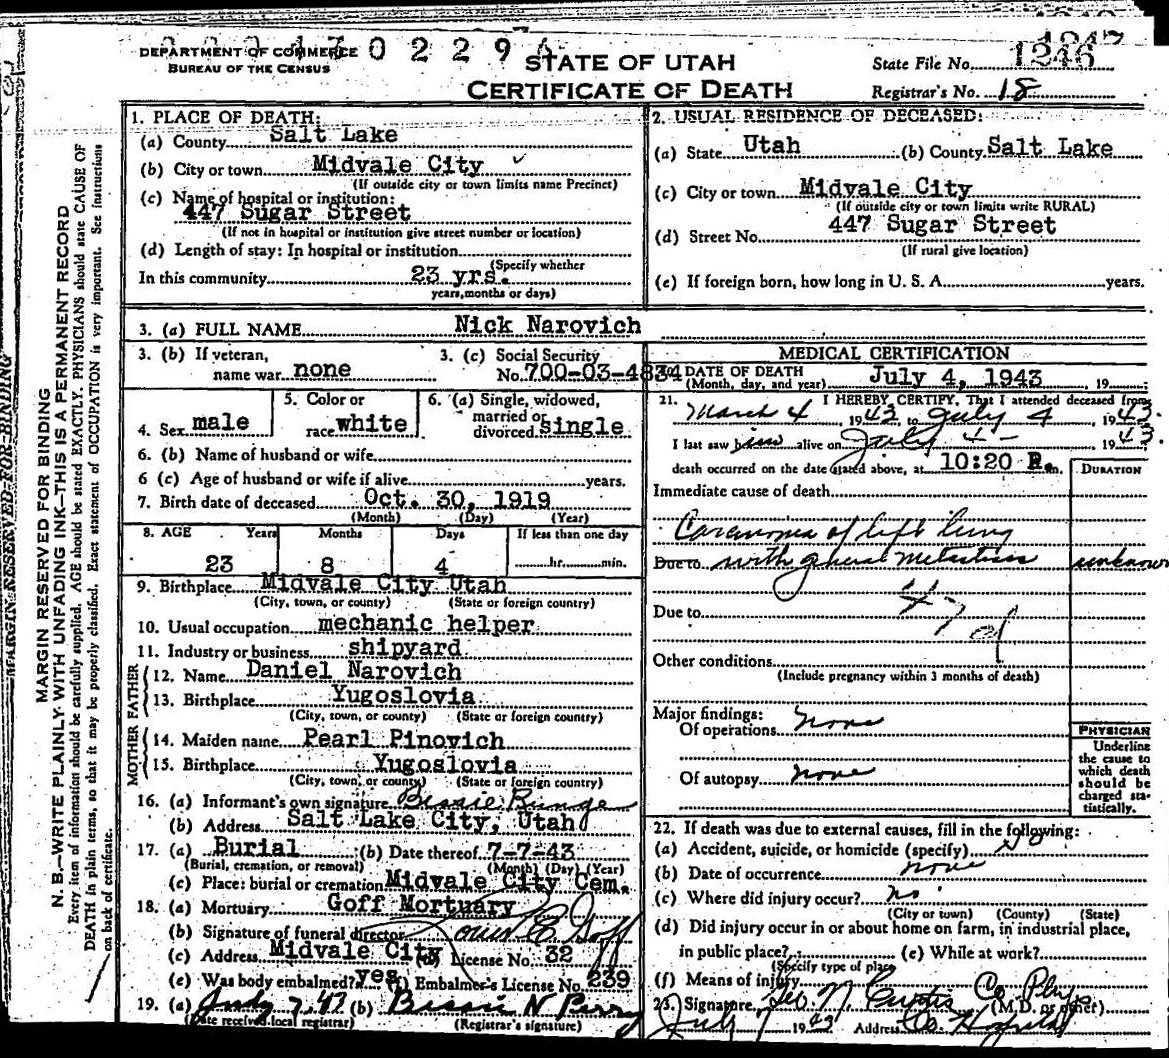 DEPARTMENT OF COMMERCE
BUREAU OF THE CENSUS
0 2 2 9
STATE OF UTAH
CERTIFICATE OF DEATH
1247
State File No. 1246
Registrar's No. 18
MARGIN RESERVED FOR BINDING
MARGIN RESERVED FOR BINDING
N. B.—WRITE PLAINLY WITH UNFADING INK—THIS IS A PERMANENT RECORD
Every item of information should be carefully supplied. AGE should be stated EXACTLY. PHYSICIANS should state CAUSE OF
DEATH in plain terms, so that it may be properly classified. Exact statement of OCCUPATION is very important. See instructions
on back of certificate.
1. PLACE OF DEATH:
(a) County Salt Lake
(b) City or town Midvale City
(If outside city or town limits name Precinct)
(c) Name of hospital or institution:
447 Sugar Street
(If not in hospital or institution give street number or location)
(d) Length of stay: In hospital or institution
(Specify whether
In this community 23 yrs.
years, months or days)
2. USUAL RESIDENCE OF DECEASED:
(a) State Utah (b) County Salt Lake
(c) City or town Midvale City
(If outside city or town limits write RURAL)
(d) Street No. 447 Sugar Street
(If rural give location)
(e) If foreign born, how long in U. S. A. years.
3. (a) FULL NAME Nick Narovich
3. (b) If veteran,
name war none
3. (c) Social Security
No. 700-03-4834
4. Sex male
5. Color or
race white
6. (a) Single, widowed,
married or
divorced single
6. (b) Name of husband or wife
6 (c) Age of husband or wife if alive years.
7. Birth date of deceased Oct. 30, 1919
(Month) (Day) (Year)
8. AGE Years Months Days If less than one day
23 8 4 hr. min.
9. Birthplace Midvale City Utah
(City, town, or county) (State or foreign country)
10. Usual occupation mechanic helper
11. Industry or business shipyard
FATHER
12. Name Daniel Narovich
13. Birthplace Yugoslovia
(City, town, or county) (State or foreign country)
MOTHER
14. Maiden name Pearl Pinovich
15. Birthplace Yugoslovia
(City, town, or county) (State or foreign country)
16. (a) Informant's own signature Bessie Bunge
(b) Address Salt Lake City, Utah
17. (a) Burial (b) Date thereof 7-7-43
(Burial, cremation, or removal) (Month) (Day) (Year)
(c) Place: burial or cremation Midvale City Cem.
18. (a) Mortuary Goff Mortuary
(b) Signature of funeral director Louis E Goff
(c) Address Midvale City (d) License No. 32
(e) Was body embalmed? yes (f) Embalmer's License No. 239
19. (a) July 7, 43 (b) Bessie N Perry
(Date received local registrar) (Registrar's signature)
MEDICAL CERTIFICATION
20. DATE OF DEATH
(Month, day, and year) July 4, 1943, 19
21. I HEREBY CERTIFY, That I attended deceased from
March 4, 1943, to July 4, 1943.
I last saw him alive on July 4 1943.
death occurred on the date stated above, at 10:20 P.m.
DURATION
Immediate cause of death
Carcinoma of left lung
Due to with general metastasis unknown
47
Due to
Other conditions
(Include pregnancy within 3 months of death)
Major findings:
Of operations none
Of autopsy none
PHYSICIAN
Underline
the cause to
which death
should be
charged sta-
tistically.
22. If death was due to external causes, fill in the following:
(a) Accident, suicide, or homicide (specify) No
(b) Date of occurrence none
(c) Where did injury occur? no
(City or town) (County) (State)
(d) Did injury occur in or about home on farm, in industrial place,
in public place? (e) While at work?
(Specify type of place)
(f) Means of injury
23. Signature Geo N. Curtis Co Phys (M.D. or other)
July 7 1943 Address Co. Hospital